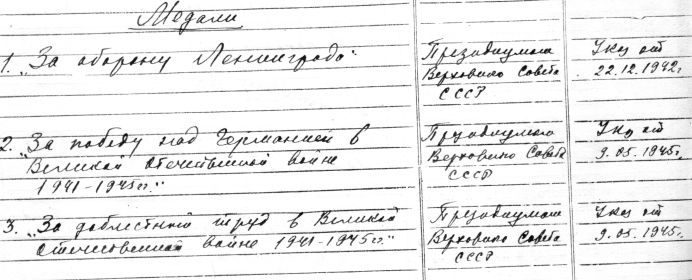 Медали
1. „За оборону Ленинграда“ Президиумом Указ от
Верховного Совета 22.12.1942г.
СССР
2. „За победу над Германией в Президиумом Указ от
Великой Отечественной войне Верховного Совета 9.05.1945г.
1941-1945гг.“ СССР
3. „За доблестный труд в Великой Президиумом Указ от
Отечественной войне 1941-1945гг.“ Верховного Совета 9.05.1945г.
СССР